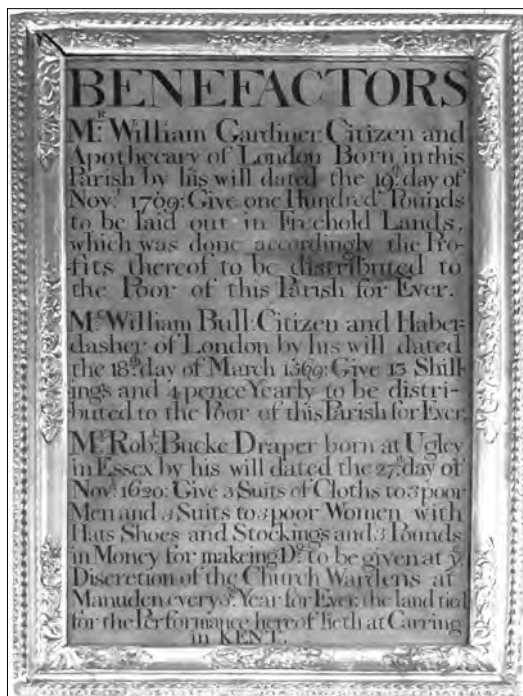 BENEFACTORS
Mr. William Gardiner Citizen and
Apothecary of London Born in this
Parish by his will dated the 19th day of
Novr. 1709: Give one Hundred Pounds
to be laid out in Freehold Lands,
which was done accordingly the Pro-
fits thereof to be distributed to
the Poor of this Parish for Ever.
Mr. William Bull: Citizen and Haber-
dasher of London by his will dated
the 18th day of March 1569: Give 13 Shill-
ings and 4 pence Yearly to be distri-
buted to the Poor of this Parish for Ever.
Mr. Robt. Bucke Draper born at Ugley
in Essex by his will dated the 27th day of
Novr. 1620: Give 3 Suits of Cloths to 3 poor
Men and 3 Suits to 3 poor Women with
Hats Shoes and Stockings and 3 Pounds
in Money for makeing Do. to be given at ye
Discretion of the Church Wardens at
Manuden every 3d. Year for Ever: the land tied
for the Performance hereof lieth at Carring
in KENT.